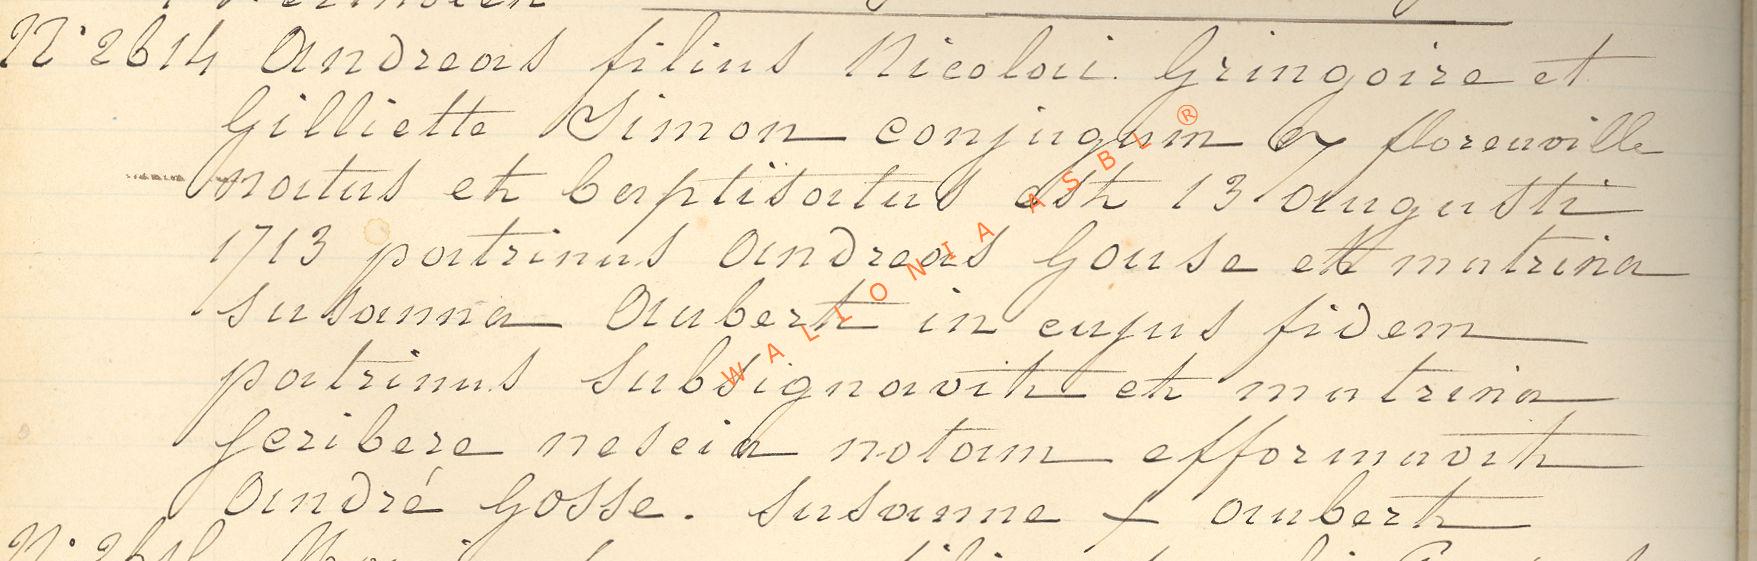 N° 2614 Andreas filius Nicolai Gringoire et
Gilliette Simon conjugum ex florenville
natus et baptisatus est 13 augusti
1713 patrinus Andreas Gouse et matrina
susanna Aubert in cujus fidem
patrinus subsignavit et matrina
scribere nescia notam efformavit
André Gosse. susanne + Aubert
WALLONIA ASBL ®